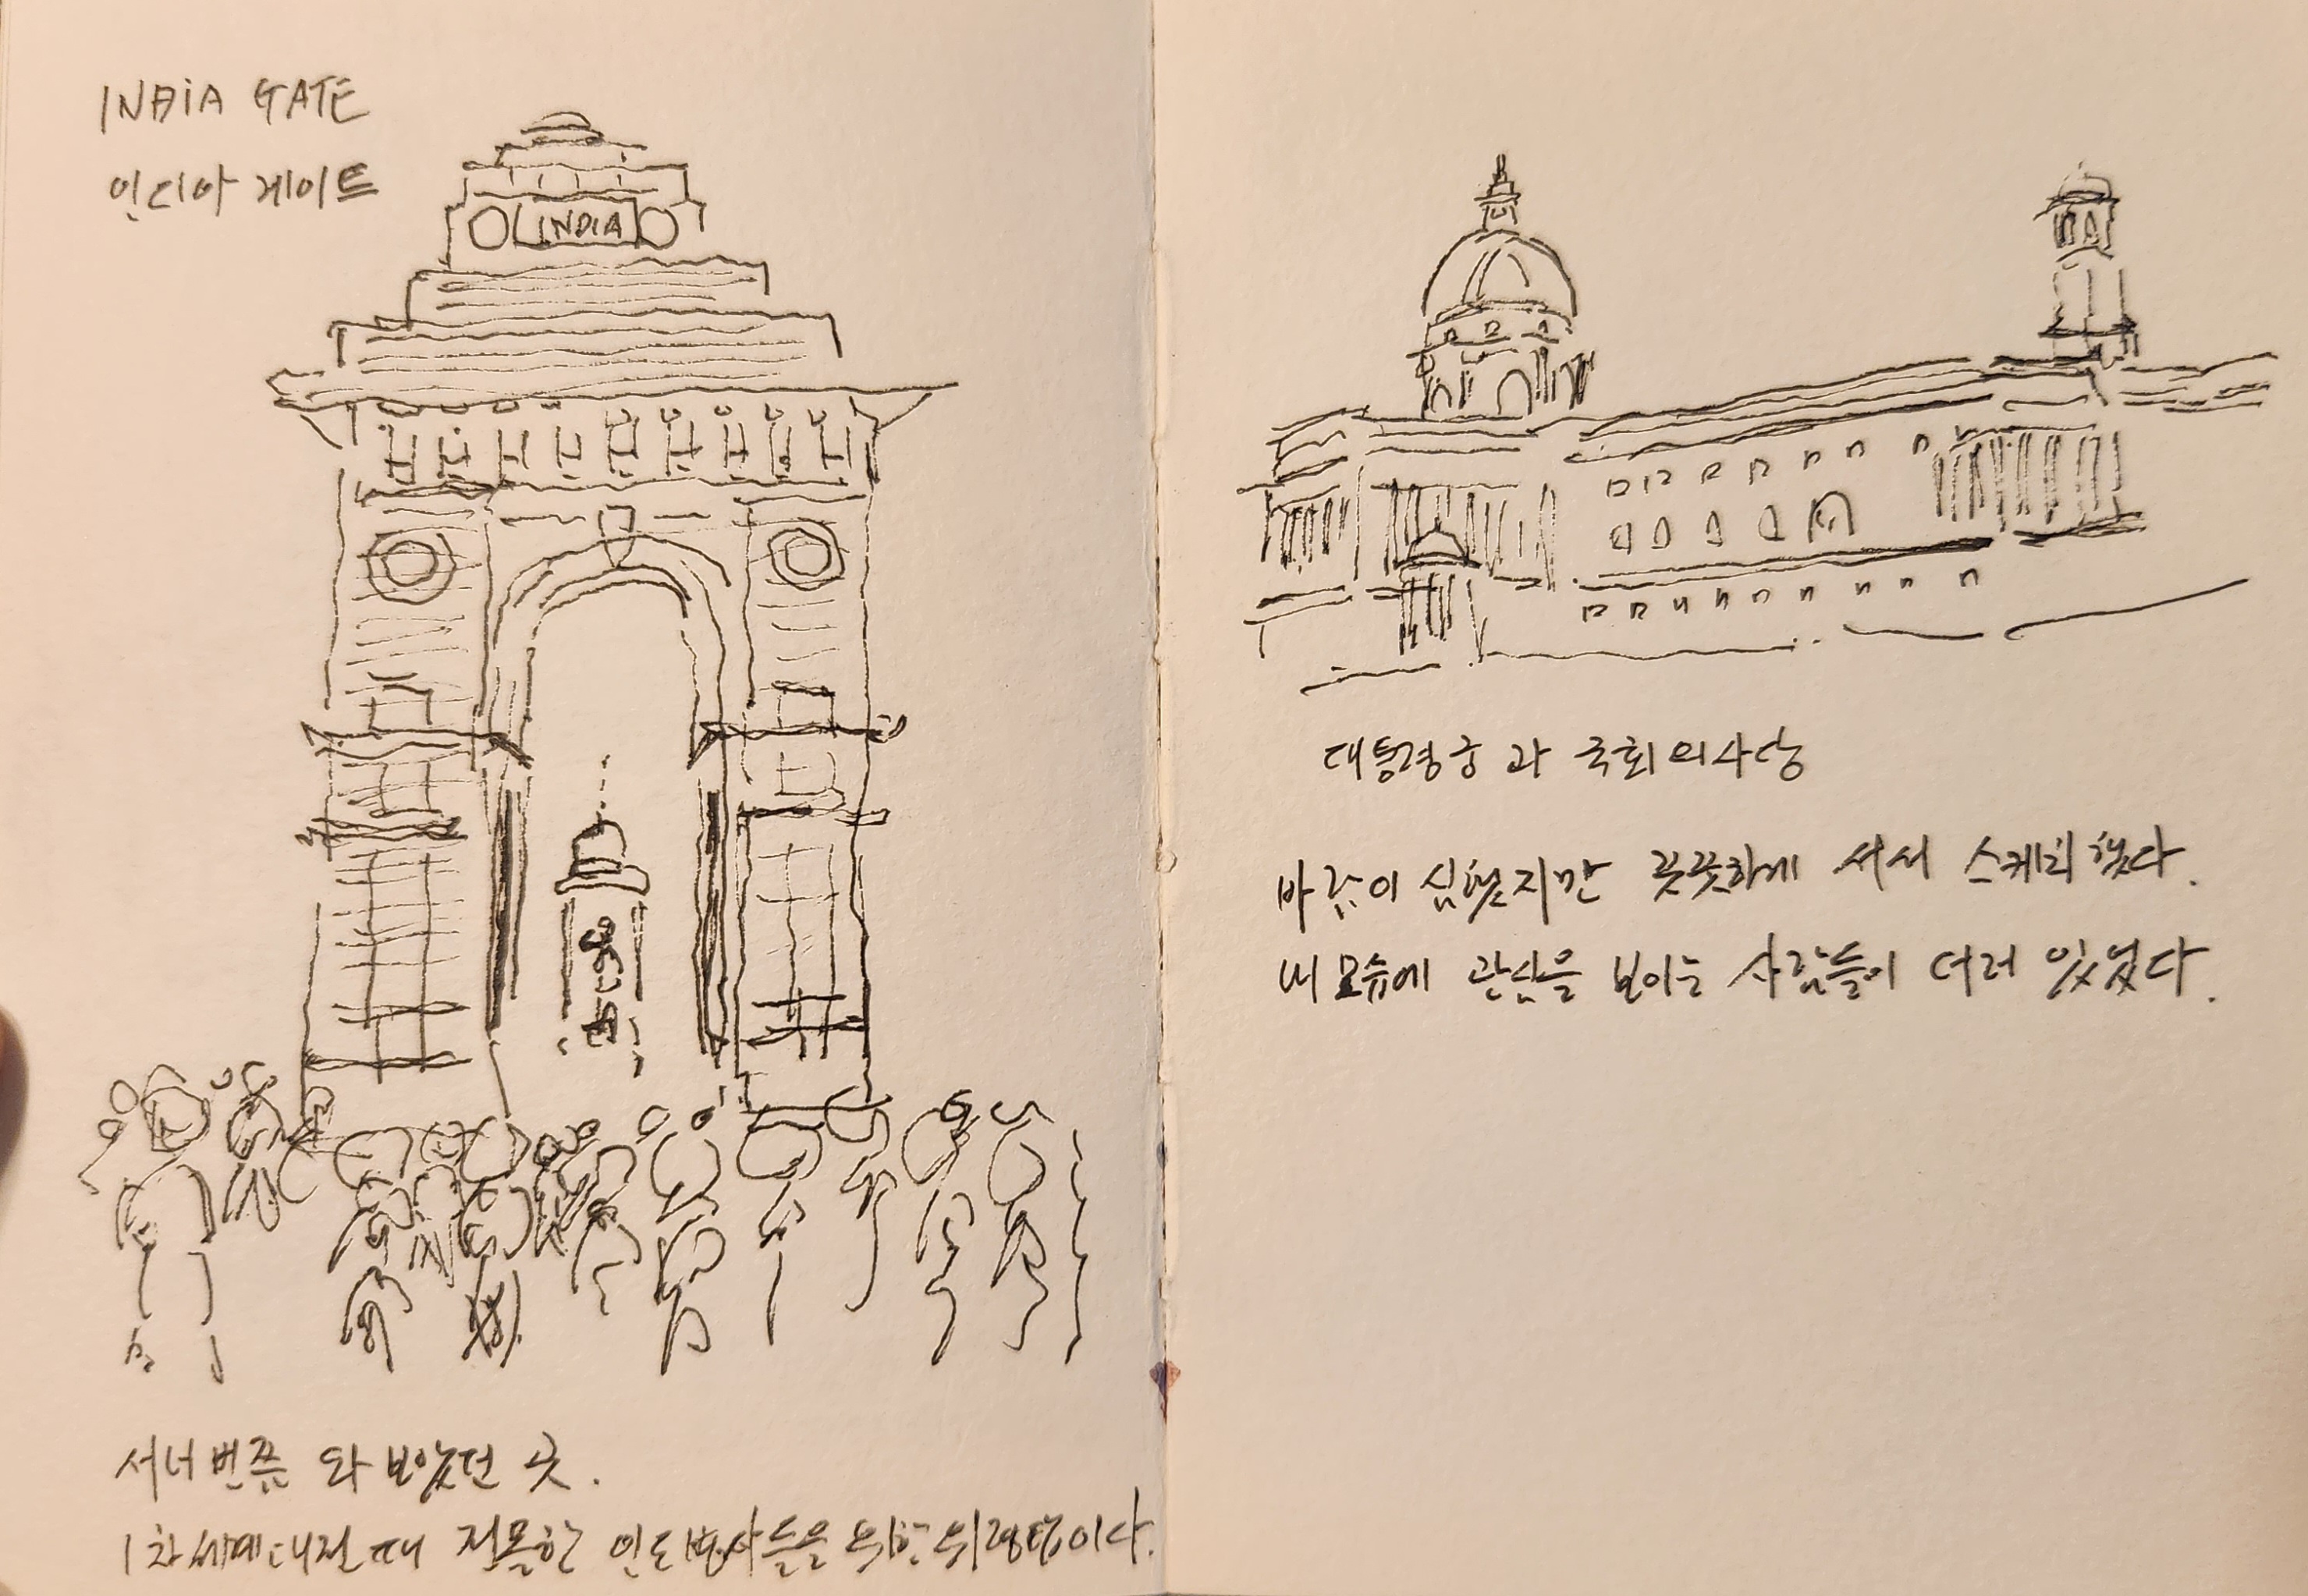 INDIA GATE
인디아 게이트
INDIA
서너번쯤 와 보았던 곳.
1차세계대전때 전몰한 인도병사들을 위한 위령탑이다.
대통령궁과 국회의사당
바람이 심했지만 꼿꼿하게 서서 스케치했다.
내 모습에 관심을 보이는 사람들이 더러 있었다.